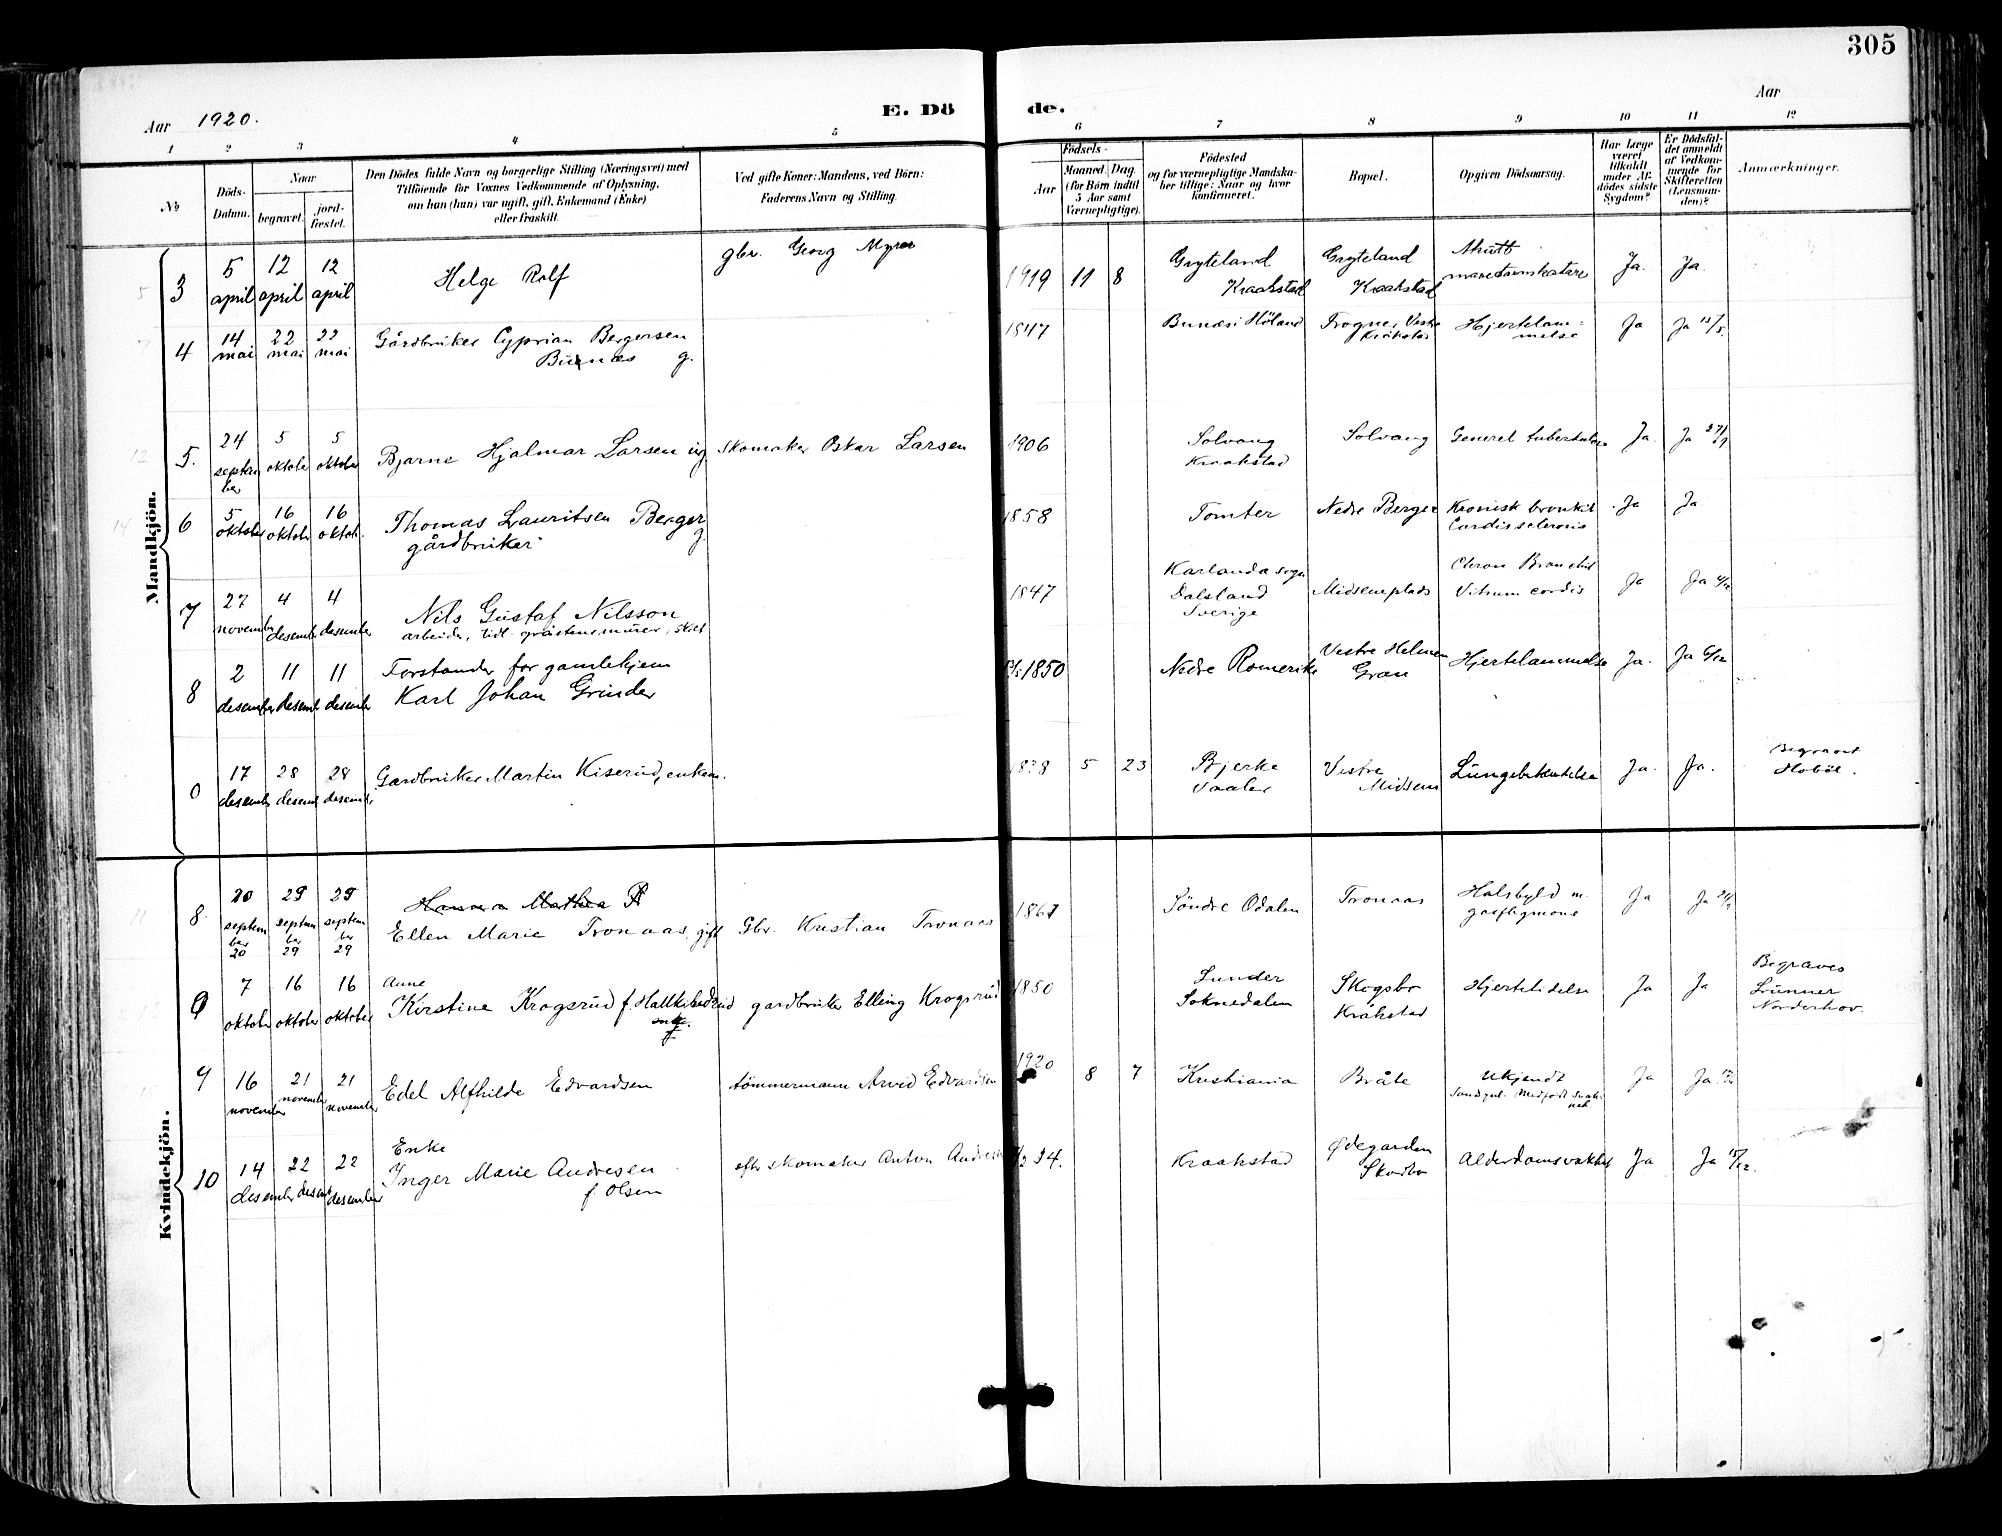 305
Aar 1920.
E. Dö de.
Aar
1 2 3 4 5 6 7 8 9 10 11 12
№
Döds-Datum.
Naar
begravet.
jord-fæstet.
Den Dödes fulde Navn og borgerlige Stilling (Næringsvei) med
Tilföiende for Voxnes Vedkommende af Oplysning,
om han (hun) var ugift, gift, Enkemand (Enke)
eller fraskilt.
Ved gifte Koner: Mandens, ved Börn:
Faderens Navn og Stilling.
Födsels-
Aar
Maaned. Dag.
(for Börn indtil
5 Aar samt
Værnepligtige).
Födested
og for værnepligtige Mandska-
ber tillige: Naar og hvor
konfirmeret.
Bopæl.
Opgiven Dödsaarsag.
Har Læge
været
tilkaldt
under Af-
dödes sidste
Sygdom?
Er Dödsfal-
det anmeldt
af Vedkom-
mende for
Skifteretten
(Lensman-
den)?
Anmærkninger.
Mandkjön.
3 5 april 12 april 12 april Helge Rolf gbr. Georg Myrer 1919 11 8 Gryteland Kraakstad Gryteland Kraakstad Akutt Ja. Ja.
4 14 mai 22 mai 22 mai Gårdbruker Cyprian Bergersen Bunæs g. 1847 Bunæs i Höland Frogner Vestre Kråkstad Hjertelam=melse Ja Ja 15/5.
5. 24 septem ber 5 oktober 5 oktober Bjarne Hjalmar Larsen ug. Skomaker Oskar Larsen 1906 Solvang Kraakstad Solvang Generel tuberkulose Ja. Ja 27/9
6 5 oktober 16 oktober 16 oktob. Thomas Lauritsen Berger g. gårdbruker 1858 Tomter Nedre Berger Kronisk bronkit Ja Ja
7 27 november 4 desember 4 desember Nils Gustaf Nilsson arbeider, tidl. gråstensmurer, 1847 Karlanda sogn Dalsland Sverige Midsemplads Chron Bronchit Vitium cordis Ja Ja 4/12
8 2 desember 11 desemb 11 desember Forstander for gamlehjem Karl Johan Grinder 1850 Nedre Romerike Vestre Helmen Gran Hjertelammelse Ja. Ja 6/12
0 17 desember 28 desemb 28 desemb. Gardbruker Martin Kiserud, enkem. 1838 5 23 Bjerke Vaaler Vestre Midsem Lungebetændelse Ja. Ja. Begravet Hobøl.
Kvindekjön.
8. 20 septem ber 20 29 septem ber 29 29 septem br 29 Hanna Mathea R Ellen Marie Tronaas, gift Gbr. Kristian Tronaas 1867 Söndre Odalen Tronaas Halsbyld m. gasflegmone Ja Ja
0 7 oktober 16 oktober 16 oktober Anne Kirstine Krogsrud f. gardbruker Elling Krogsrud 1850 Sunder Soknedalen Skogsbo Kråkstad Hjertelidelse Ja Ja Begraves Lunner Norderhov.
9 16 november 21 november 21 november Edel Alfhilde Edvardsen tömmermann Arvid Edvardsen 1920 8 7 Kristiania Bråte Ukjendt Sandsynl. Medfødt svak-het Ja Ja
10 14 desember 22 desemb 22 desember Enke Inger Marie Andresen f. Olsen efter skomaker Anton Andresen 34. Kraakstad Ødegarden Skodbo Alderdomsvakhet Ja Ja 15/12.